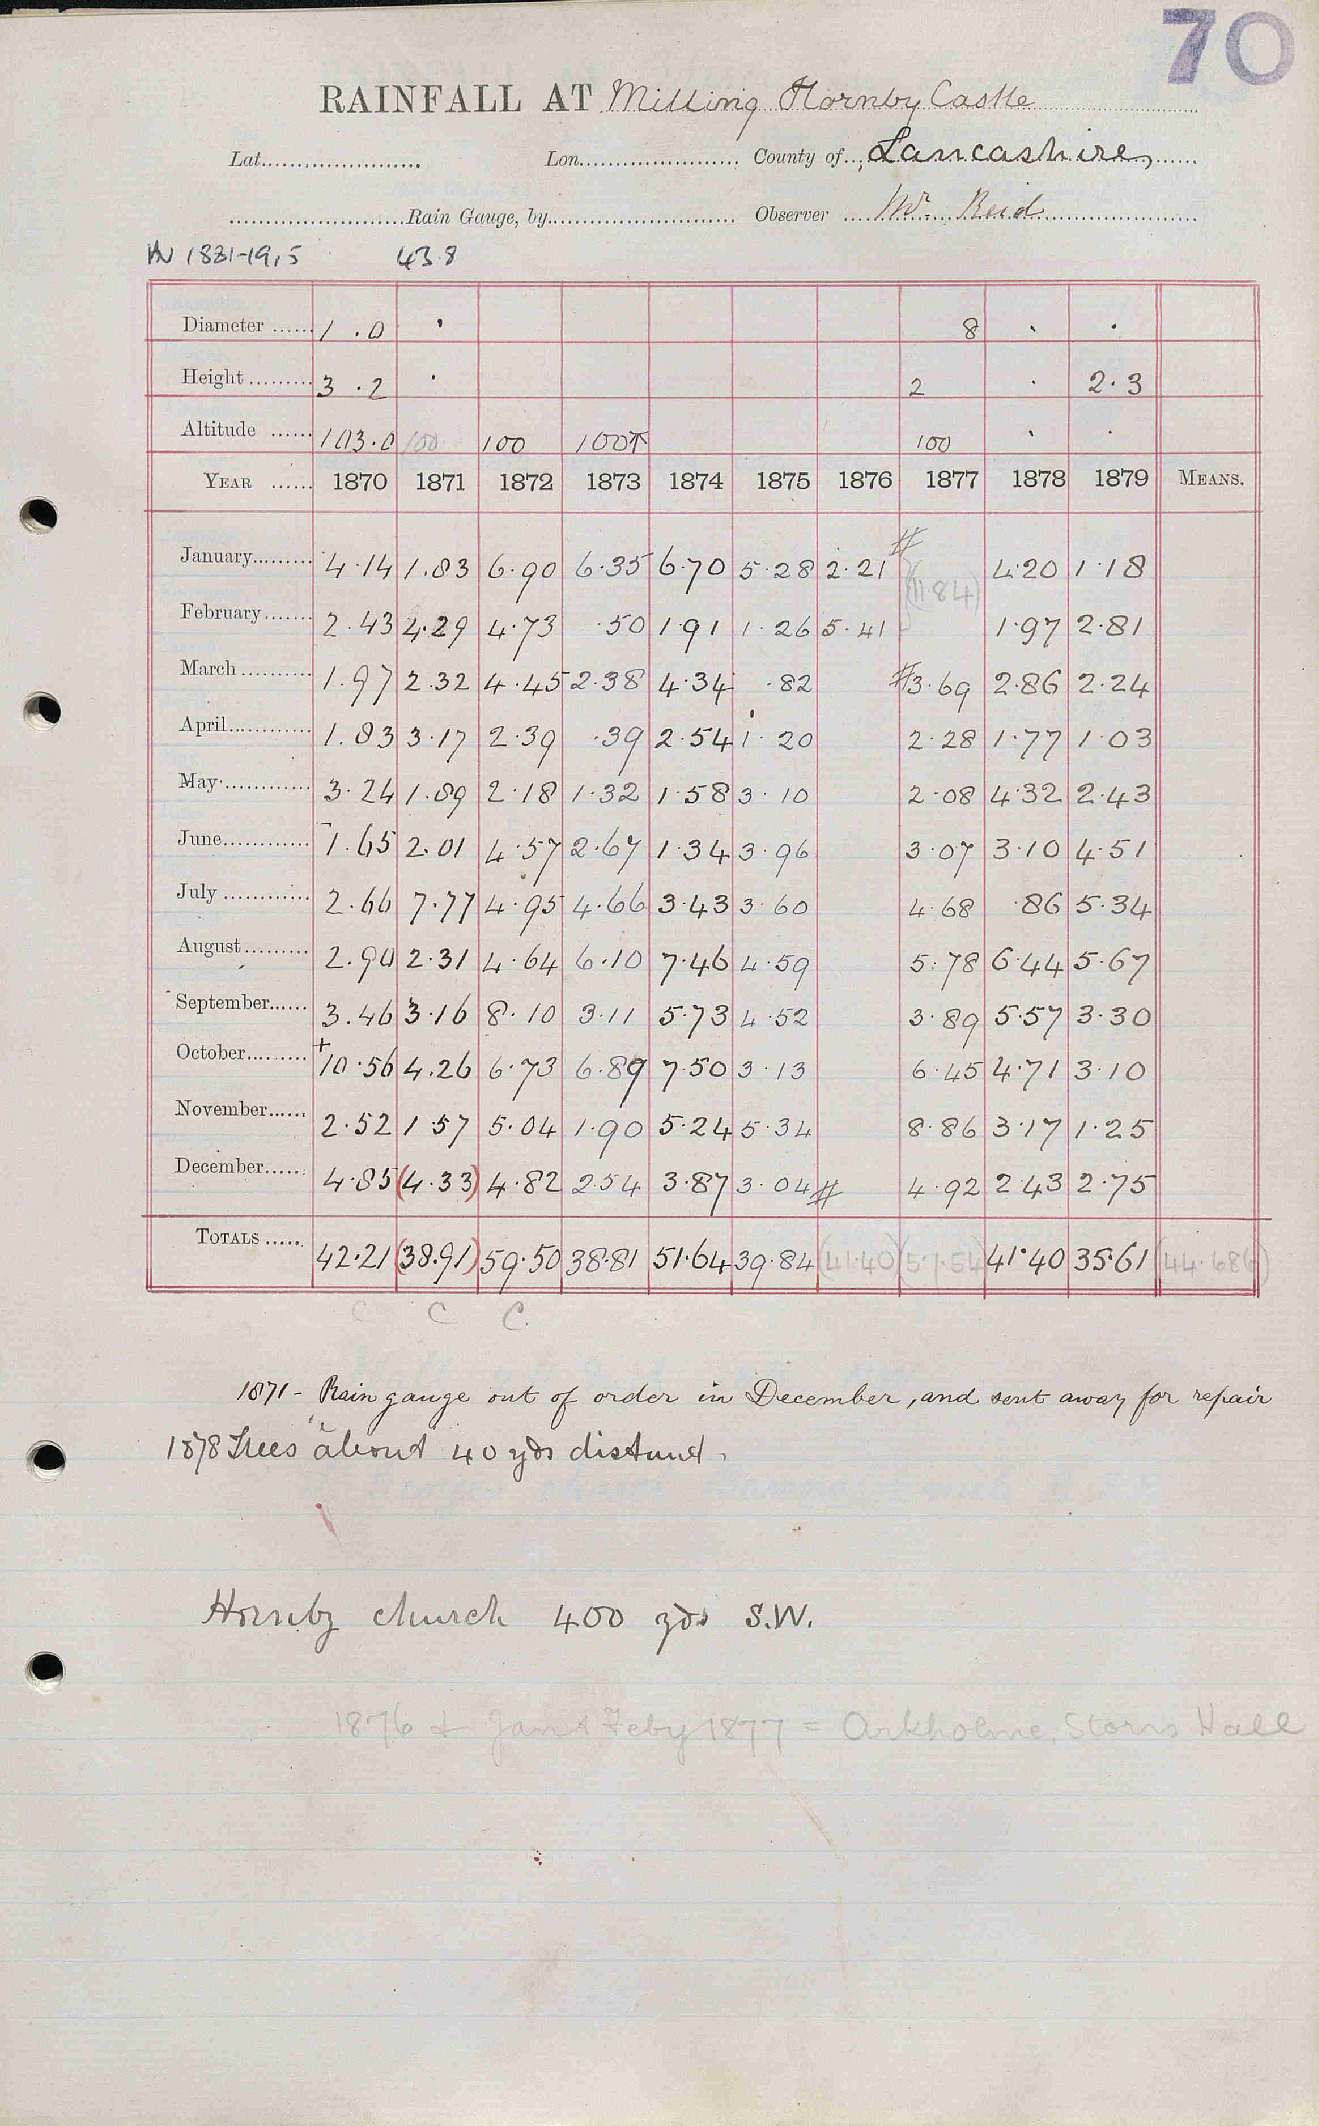 70
RAINFALL AT Milling Hornby Castle
Lat. Lon. County of Lancashire,
Rain Gauge, by Observer Mr. Reid
1881-1915 43.8
Diameter 1 .0 · 8 · ·
Height 3 .2 · 2 · 2.3
Altitude 103.0 100 100 100T 100 · ·
YEAR 1870 1871 1872 1873 1874 1875 1876 1877 1878 1879 MEANS.
January 4.14 1.83 6.90 6.35 6.70 5.28 2.21 # (11.84) 4.20 1.18
February 2.43 4.29 4.73 .50 1.91 1.26 5.41 1.97 2.81
March 1.97 2.32 4.45 2.38 4.34 .82 #3.69 2.86 2.24
April 1.83 3.17 2.39 .39 2.54 1.20 2.28 1.77 1.03
May 3.24 1.89 2.18 1.32 1.58 3.10 2.08 4.32 2.43
June 1.65 2.01 4.57 2.67 1.34 3.96 3.07 3.10 4.51
July 2.66 7.77 4.95 4.66 3.43 3.60 4.68 .86 5.34
August 2.90 2.31 4.64 6.10 7.46 4.59 5.78 6.44 5.67
September 3.46 3.16 8.10 3.11 5.73 4.52 3.89 5.57 3.30
October +10.56 4.26 6.73 6.89 7.50 3.13 6.45 4.71 3.10
November 2.52 1.57 5.04 1.90 5.24 5.34 8.86 3.17 1.25
December 4.85 (4.33) 4.82 2.54 3.87 3.04 # 4.92 2.43 2.75
TOTALS 42.21 (38.91) 59.50 38.81 51.64 39.84 (41.40) (57.54) 41.40 35.61 (44.686)
C C C.
1871 - Rain gauge out of order in December, and sent away for repair
1878 Trees about 40 yds distant.
Hornby church 400 yds S.W.
1876 & Jan & Feby 1877 = Arkholme, Storrs Hall